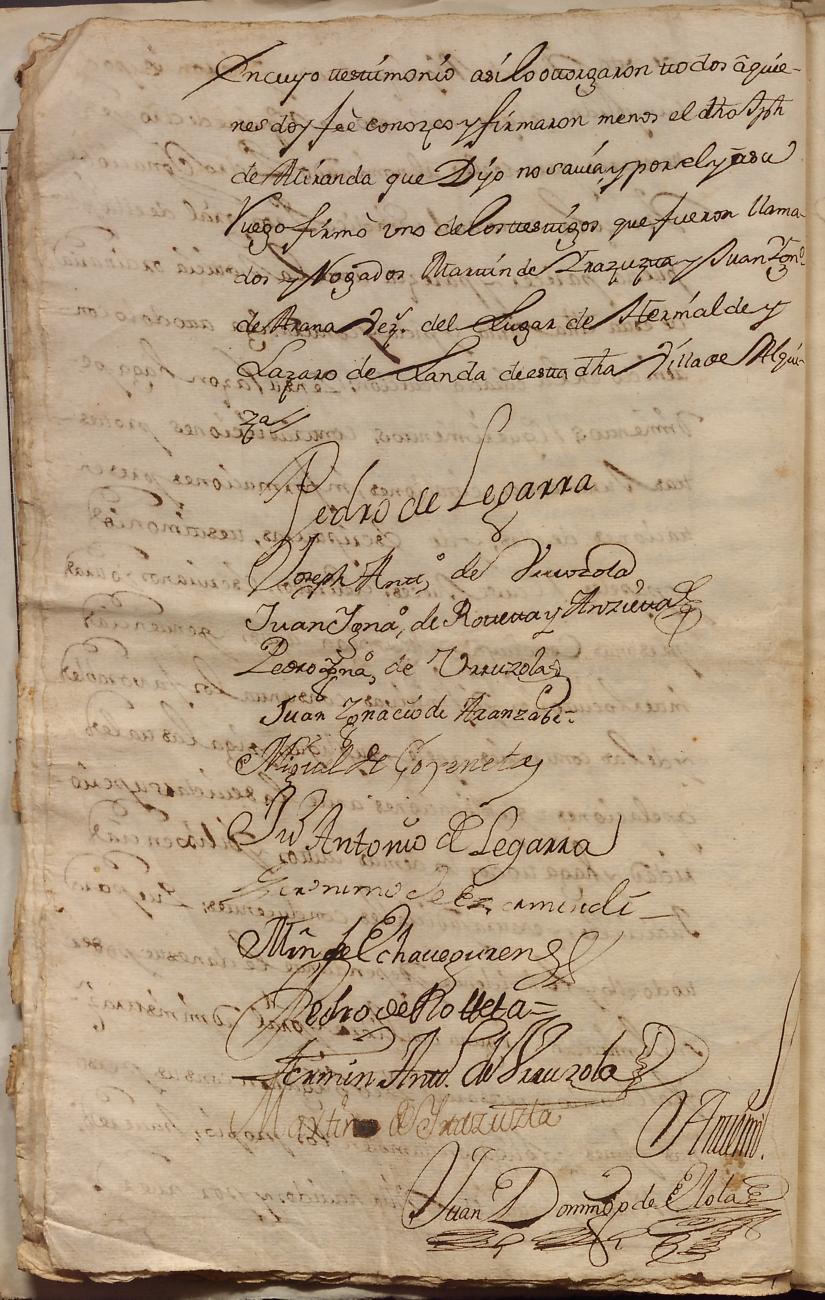 En cuyo testimonio asi lo otorgaron todos â quie-
nes doy feê conozco y firmaron menos el dho Jph
de Miranda que Dijo no savia, y por el y â su
Ruego firmò uno de los testigos que fueron llama-
dos y Rogados Martin de Yrazuzta y Juan Ygnº
de Arana Vezs. del Lugar de Hermalde y
Lazaro de Landa de esta dha Villa de Alqui-
za
Pedro de Legarra
Joseph Anttº de Vrruzola
Juan Ygnaº, de Rotetta y Anzietta
Pedro Ygnaº, de Urruzola
Juan Ygnacio de Aranzabi-
Migual de Goyenete
Ju Antonio de Legarra
Geronimo de
Min de Echaveguren
Pedro de Rotteta=
Fermin Antt. de Vrruzola
Martin de Yrazuzta
Antemi.
Juan Domingo de Elola